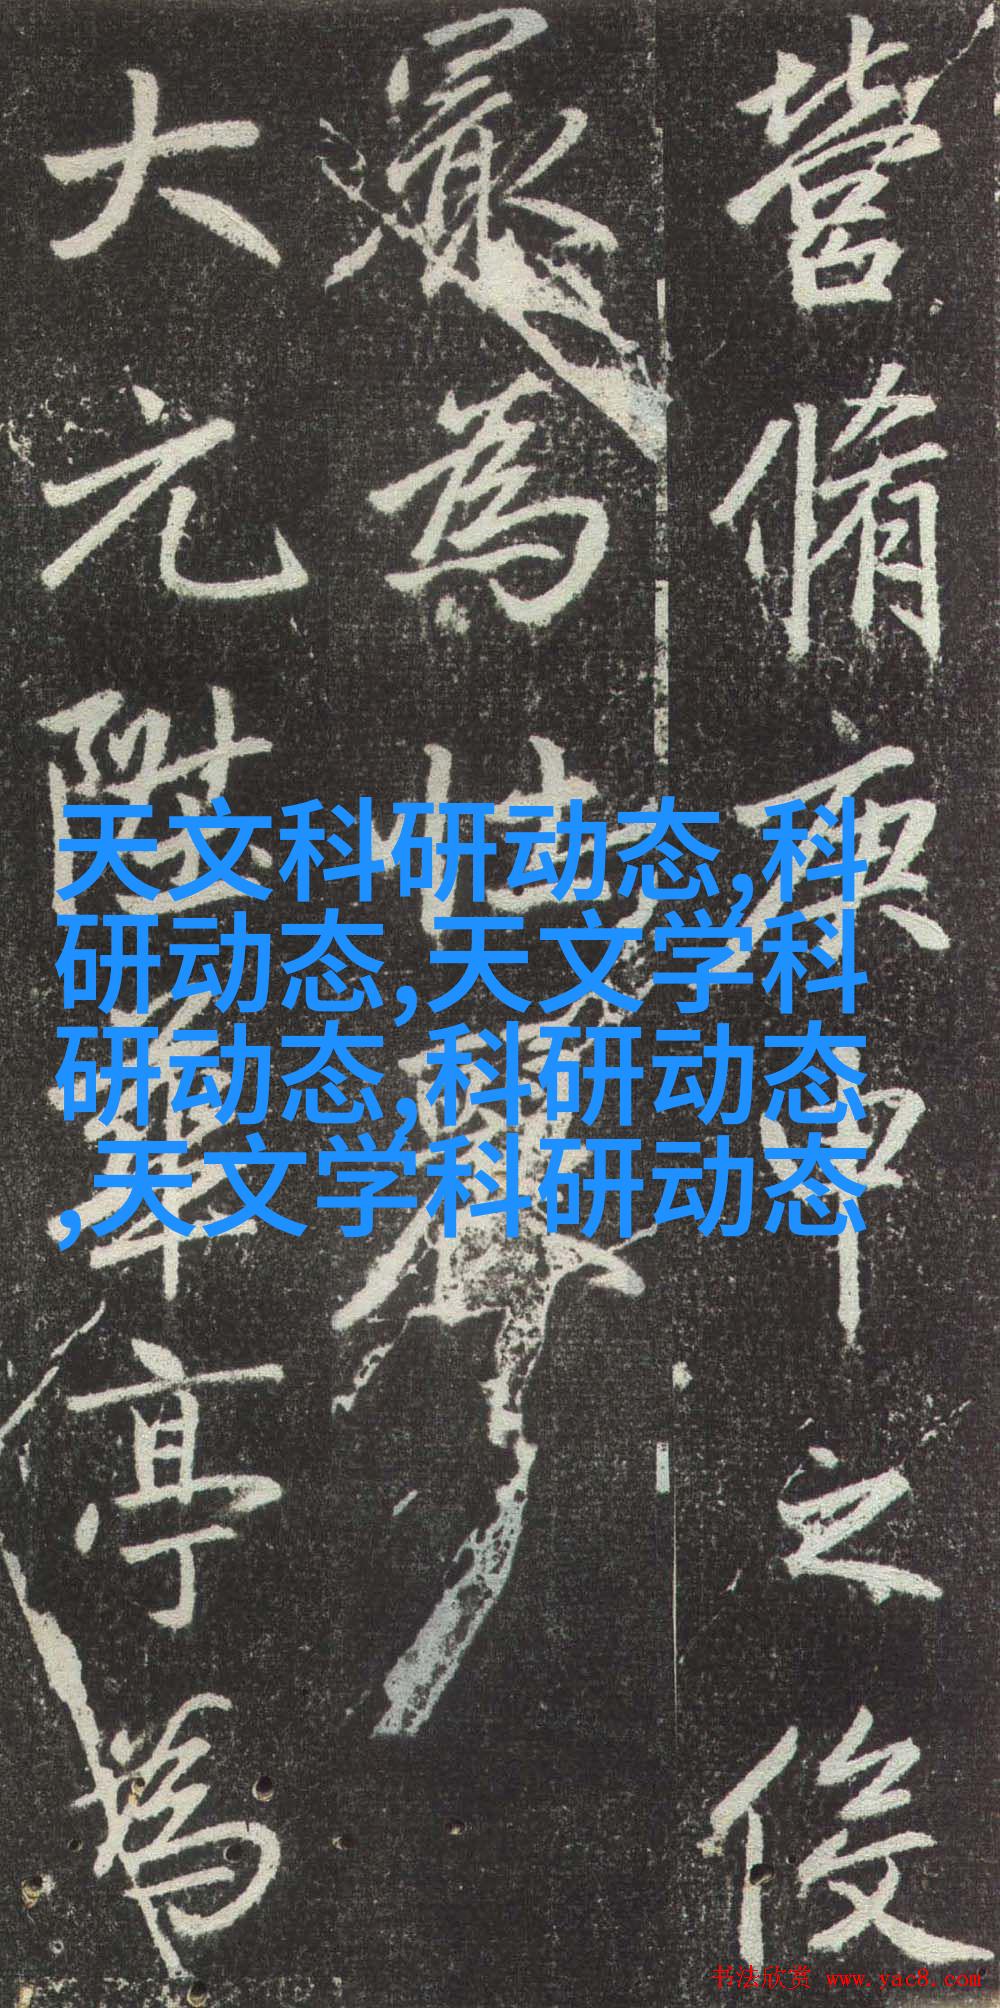 营脩庚申之後
最为世
大元陞華亭为
天文科研动态,科
研动态,天文学科
研动态,科研动态
,天文学科研动态
书法欣赏 www.yac8.com